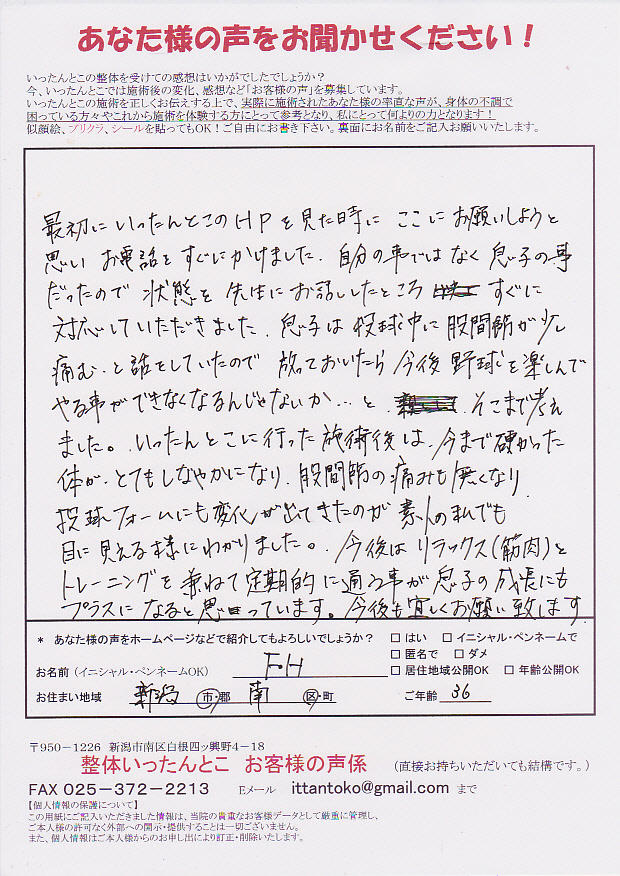 あなた様の声をお聞かせください！
いったんとこの整体を受けての感想はいかがでしたでしょうか？
今、いったんとこでは施術後の変化、感想など「お客様の声」を募集しています。
いったんとこの施術を正しくお伝えする上で、実際に施術されたあなた様の率直な声が、身体の不調で
困っている方々やこれから施術を体験する方にとって参考となり、私にとって何よりの力となります！
似顔絵、プリクラ、シールを貼ってもOK！ご自由にお書き下さい。裏面にお名前をご記入お願いいたします。
最初にいったんとこのHPを見た時に ここにお願いしようと
思い お電話をすぐにかけました. 自分の事ではなく 息子の事
だったので 状態を 先生にお話ししたところ すぐに
対応していただきました. 息子は投球中に股間節が少し
痛む.と話をしていたので 放っておいたら 今後 野球を楽しんで
やる事ができなくなるんじゃないか…と. そこまで考え
ました。いったんとこに行った施術後は.今まで硬かった
体が.とてもしなやかになり.股間節の痛みも無くなり
投球フォームにも変化が出てきたのが 素人の私でも
目に見える様にわかりました。. 今後は リラックス(筋肉)と
トレーニングを 兼ねて定期的に通う事が息子の成長にも
プラスになると思っています。今後も宜しくお願い致します
* あなた様の声をホームページなどで紹介してもよろしいでしょうか？ □ はい □ イニシャル・ペンネームで
□ 匿名で □ ダメ
お名前（イニシャル・ペンネームOK） F・H □ 居住地域公開OK □ 年齢公開OK
お住まい地域 新潟 市・郡 南 区・町 ご年齢 36
〒950－1226 新潟市南区白根四ッ興野4－18
整体いったんとこ お客様の声係 （直接お持ちいただいても結構です。）
FAX 025-372-2213 Eメール ittantoko@gmail.com まで
【個人情報の保護について】
この用紙にご記入いただきました情報は、当院の貴重なお客様データとして厳重に管理し、
ご本人様の許可なく外部への開示・提供することは一切ございません。
また、個人情報はご本人様からのお申し出により訂正・削除いたします。